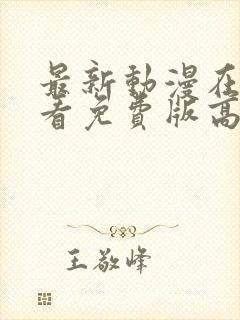 最新動漫在
看免費版高
王敬峰